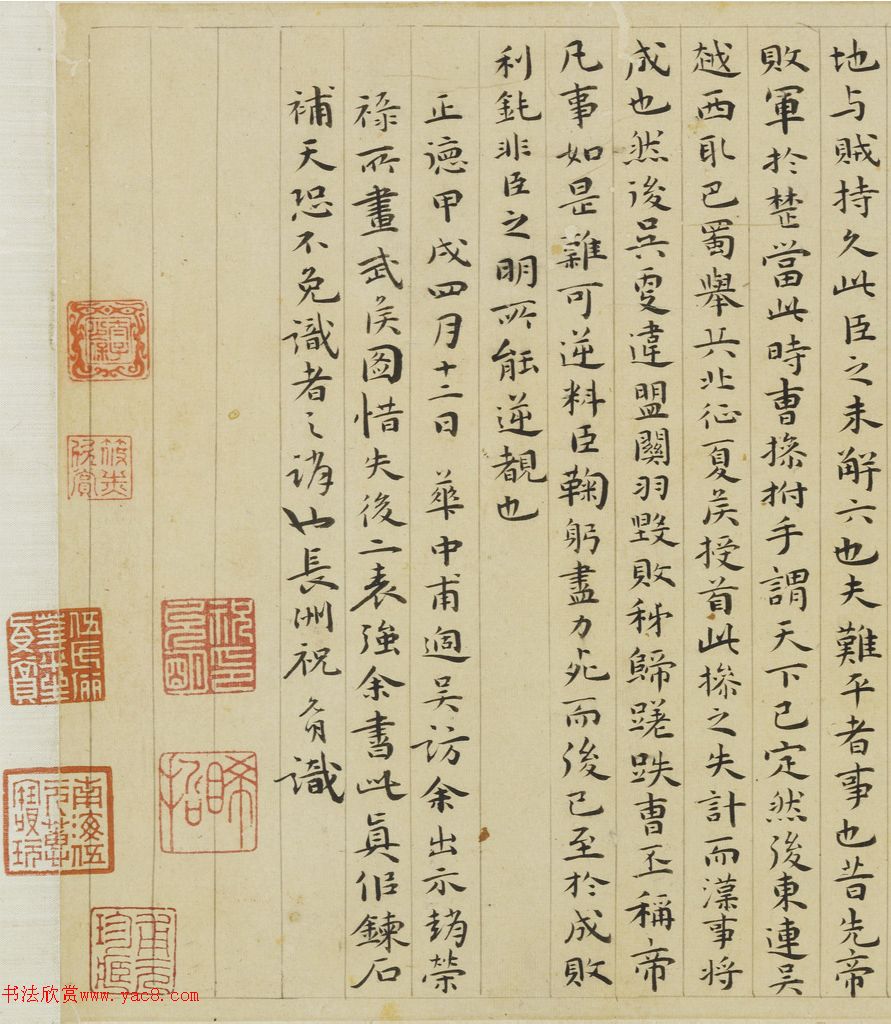 地与賊持久此臣之未解六也夫難平者事也昔先帝
敗軍於楚當此時曹操拊手謂天下已定然後東連吴
越西取巴蜀舉兵北征夏侯授首此操之失計而漢事將
成也然後吴更違盟關羽毀敗秭歸蹉跌曹丕稱帝
凡事如是難可逆料臣鞠躬盡力死而後已至於成敗
利鈍非臣之明所能逆覩也
正德甲戌四月十二日 華中甫過吴訪余出示趙榮
祿所畫武侯圖惜失後二表強余書此真似鍊石
補天恐不免識者之誚也長洲祝允明識
祝允明印
晞哲
书法欣赏www.yac8.com